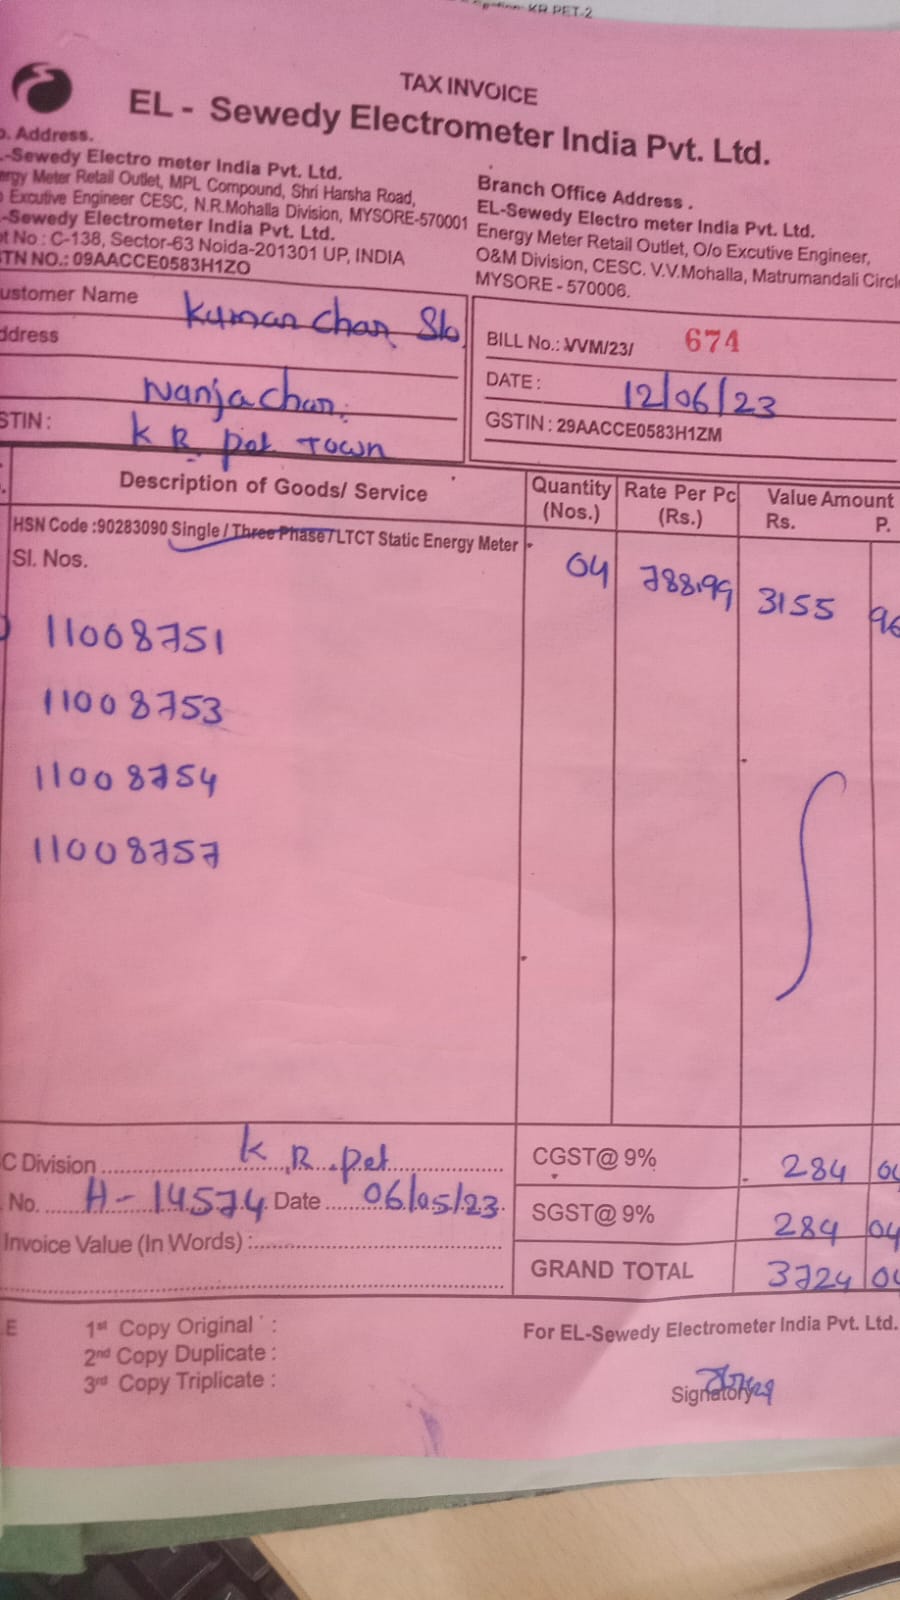 KR PET-2
TAX INVOICE
EL - Sewedy Electrometer India Pvt. Ltd.
. Address.
-Sewedy Electro meter India Pvt. Ltd.
ergy Meter Retail Outlet, MPL Compound, Shri Harsha Road,
Excutive Engineer CESC, N.R.Mohalla Division, MYSORE-570001
-Sewedy Electrometer India Pvt. Ltd.
ot No : C-138, Sector-63 Noida-201301 UP, INDIA
STN NO.: 09AACCE0583H1ZO
Branch Office Address .
EL-Sewedy Electro meter India Pvt. Ltd.
Energy Meter Retail Outlet, O/o Excutive Engineer,
O&M Division, CESC. V.V.Mohalla, Matrumandali Circl
MYSORE - 570006.
ustomer Name Kumar Char S/o
ddress
Nanjachar
STIN : K R pet Town
BILL No.: VVM/23/ 674
DATE : 12/06/23
GSTIN : 29AACCE0583H1ZM
Description of Goods/ Service Quantity (Nos.) Rate Per Pc (Rs.) Value Amount Rs. P.
HSN Code :90283090 Single / Three Phase / LTCT Static Energy Meter
Sl. Nos. 04 788.99 3155 96
11008751
11008753
11008754
11008757
C Division K R pet
CGST@ 9% 284 04
No. H-14574 Date 06/05/23
SGST@ 9% 284 04
Invoice Value (In Words) :
GRAND TOTAL 3724 04
E 1st Copy Original :
2nd Copy Duplicate :
3rd Copy Triplicate :
For EL-Sewedy Electrometer India Pvt. Ltd.
Signatory